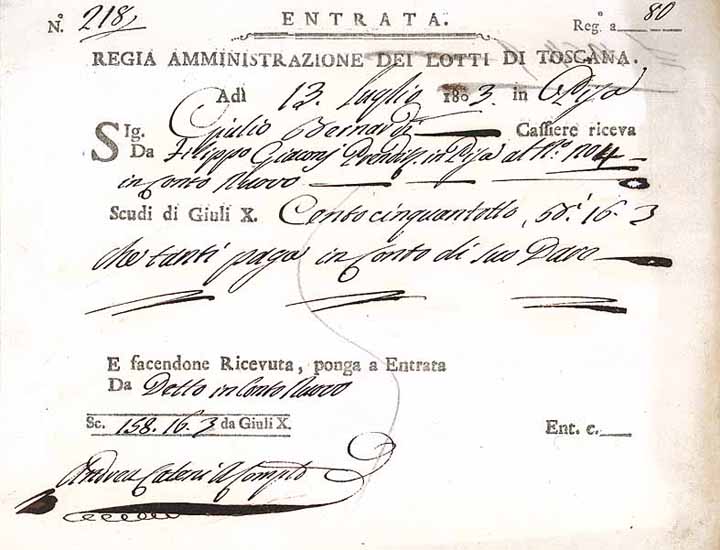 N.º 218. ENTRATA. Reg.º a 80
REGIA AMMINISTRAZIONE DEI LOTTI DI TOSCANA.
Adì 13. Luglio 1803. in Pisa
SIg. Giulio Bernardi Cassiere riceva
Da Filippo in Pisa al N.º 4
in Conto Nuovo
Scudi di Giuli X. Cento cinquantotto, 16. 3
che tanti paga in Conto di suo Dare
E facendone Ricevuta, ponga a Entrata
Da Detto in Conto Nuovo
Sc. 158. 16. 3 da Giuli X. Ent. c.
Andrea